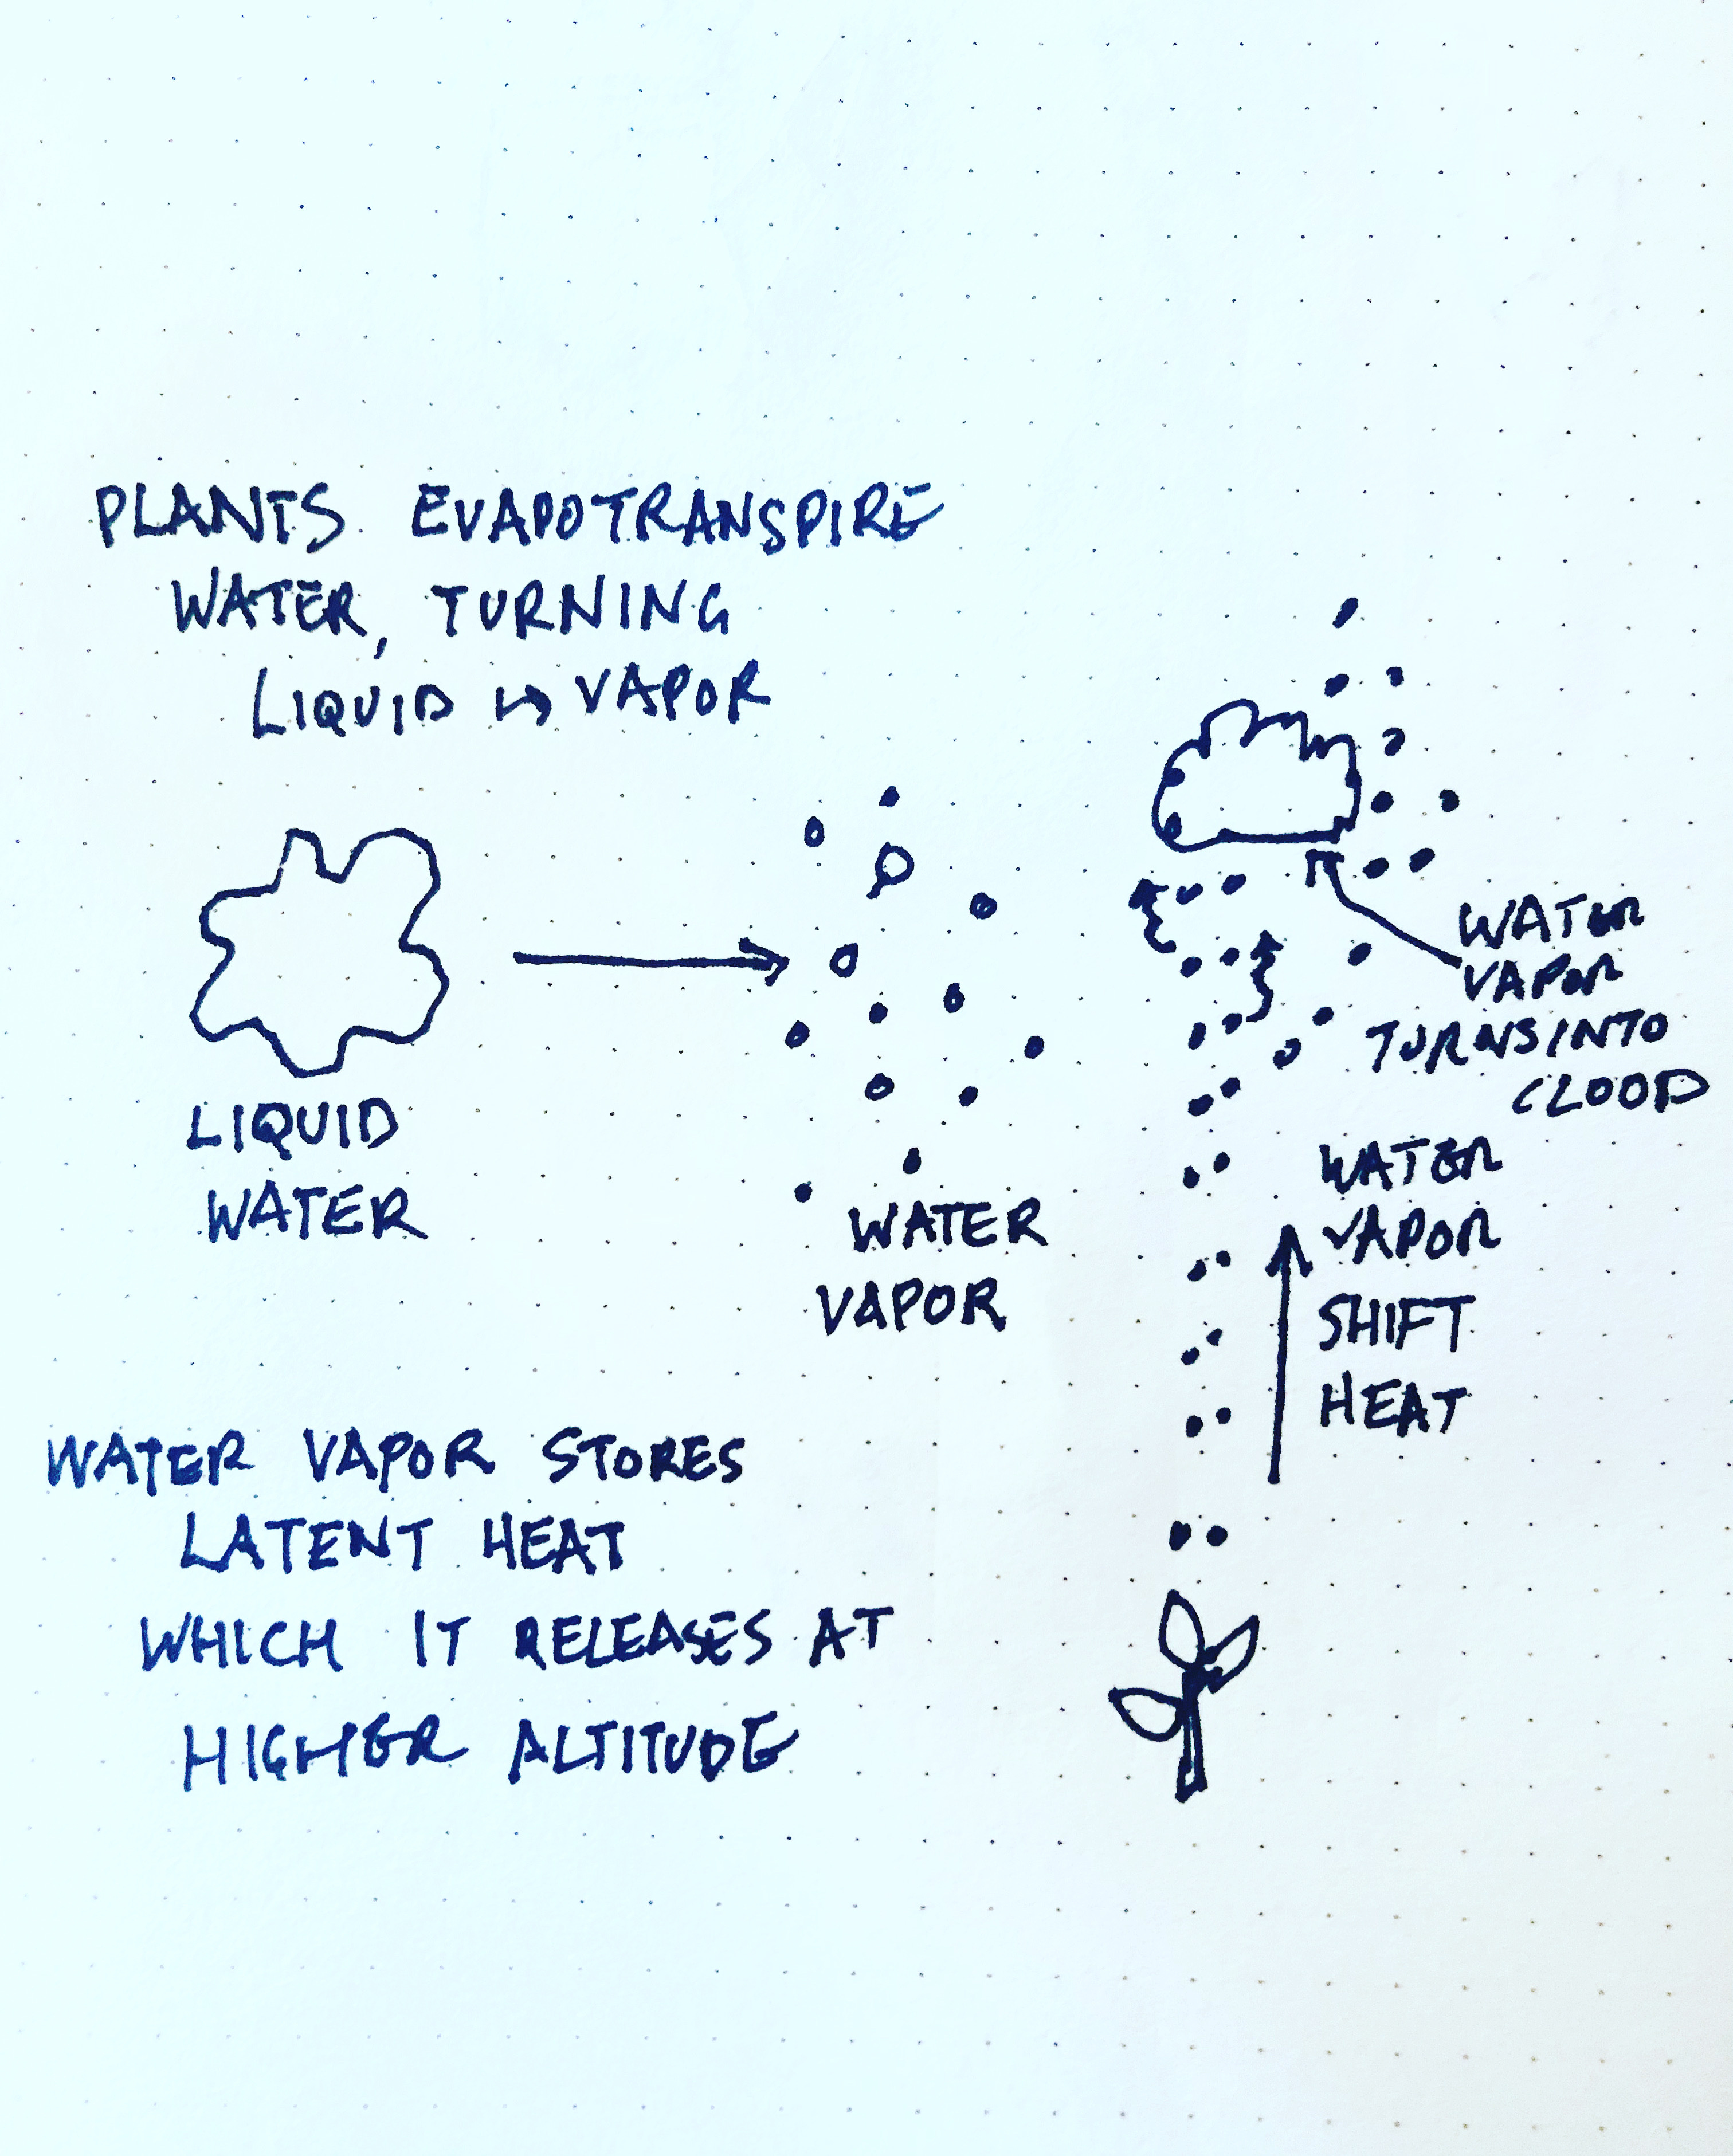 PLANTS EVAPOTRANSPIRE
WATER, TURNING
LIQUID ↳ VAPOR
LIQUID
WATER
WATER
VAPOR
WATER
VAPOR
TURNS INTO
CLOOD
WATER
VAPOR
SHIFT
HEAT
WATER VAPOR STORES
LATENT HEAT
WHICH IT RELEASES AT
HIGHER ALTITUDE